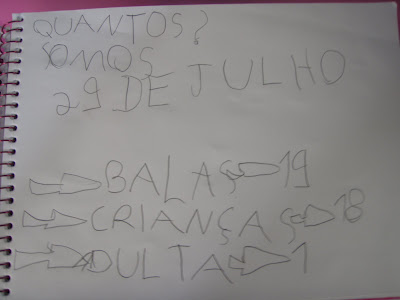 QUANTOS?
SOMOS
29 DE JULHO
BALAS 19
CRIANÇAS 18
ADULTA 1